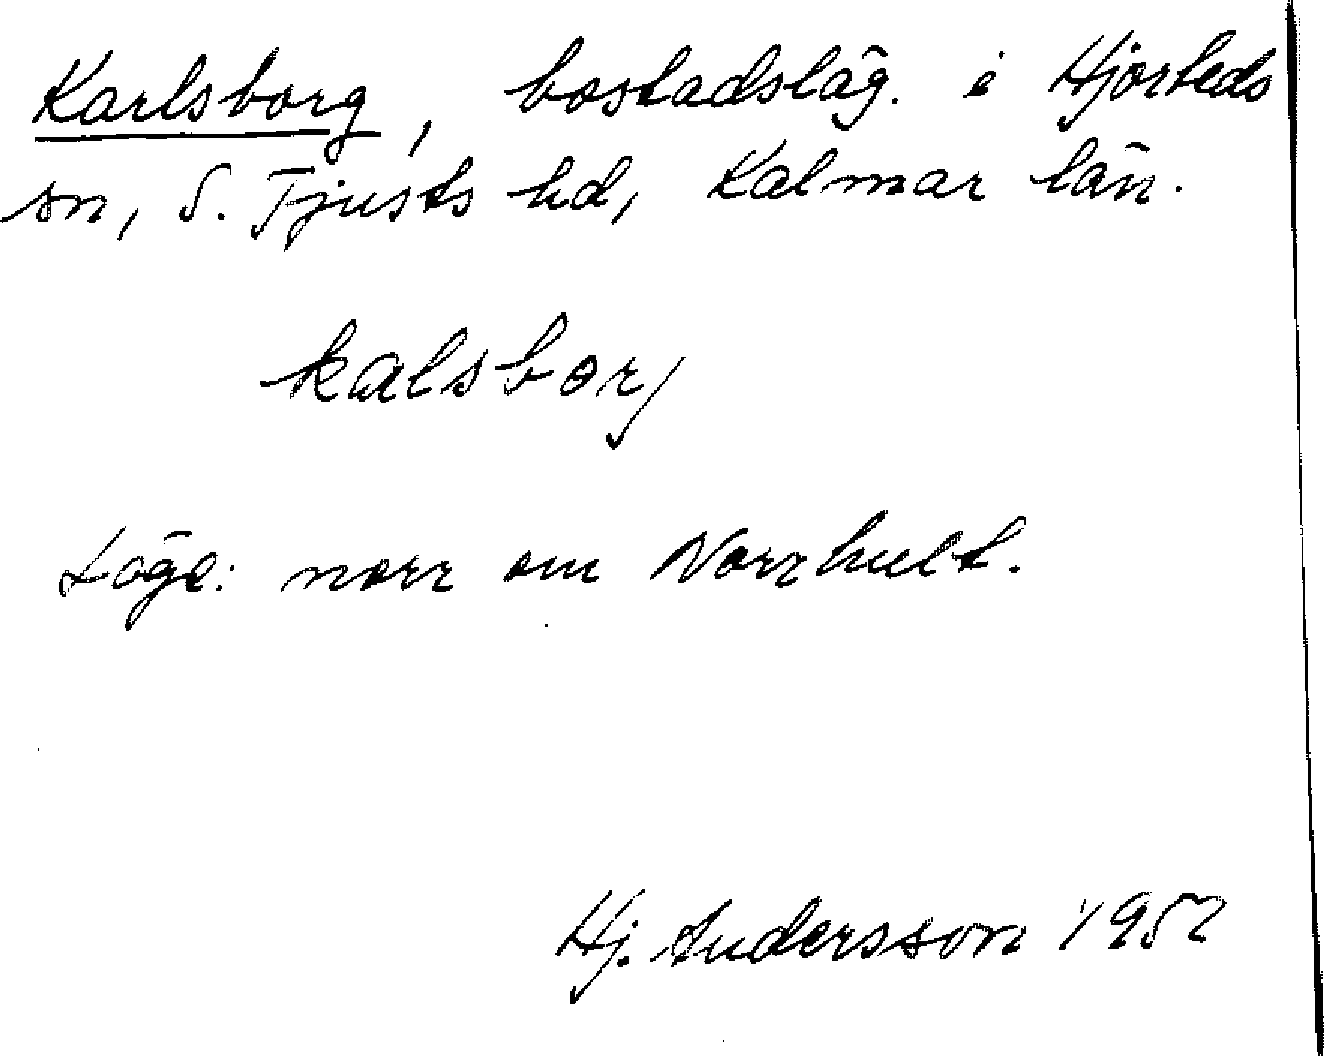 Karlsborg, bostadsläg. i Hjorteds
sn, S. Tjusts hd, Kalmar län.
kalsborj
Läge: norr om Norrhult.
Hj. Andersson 1952